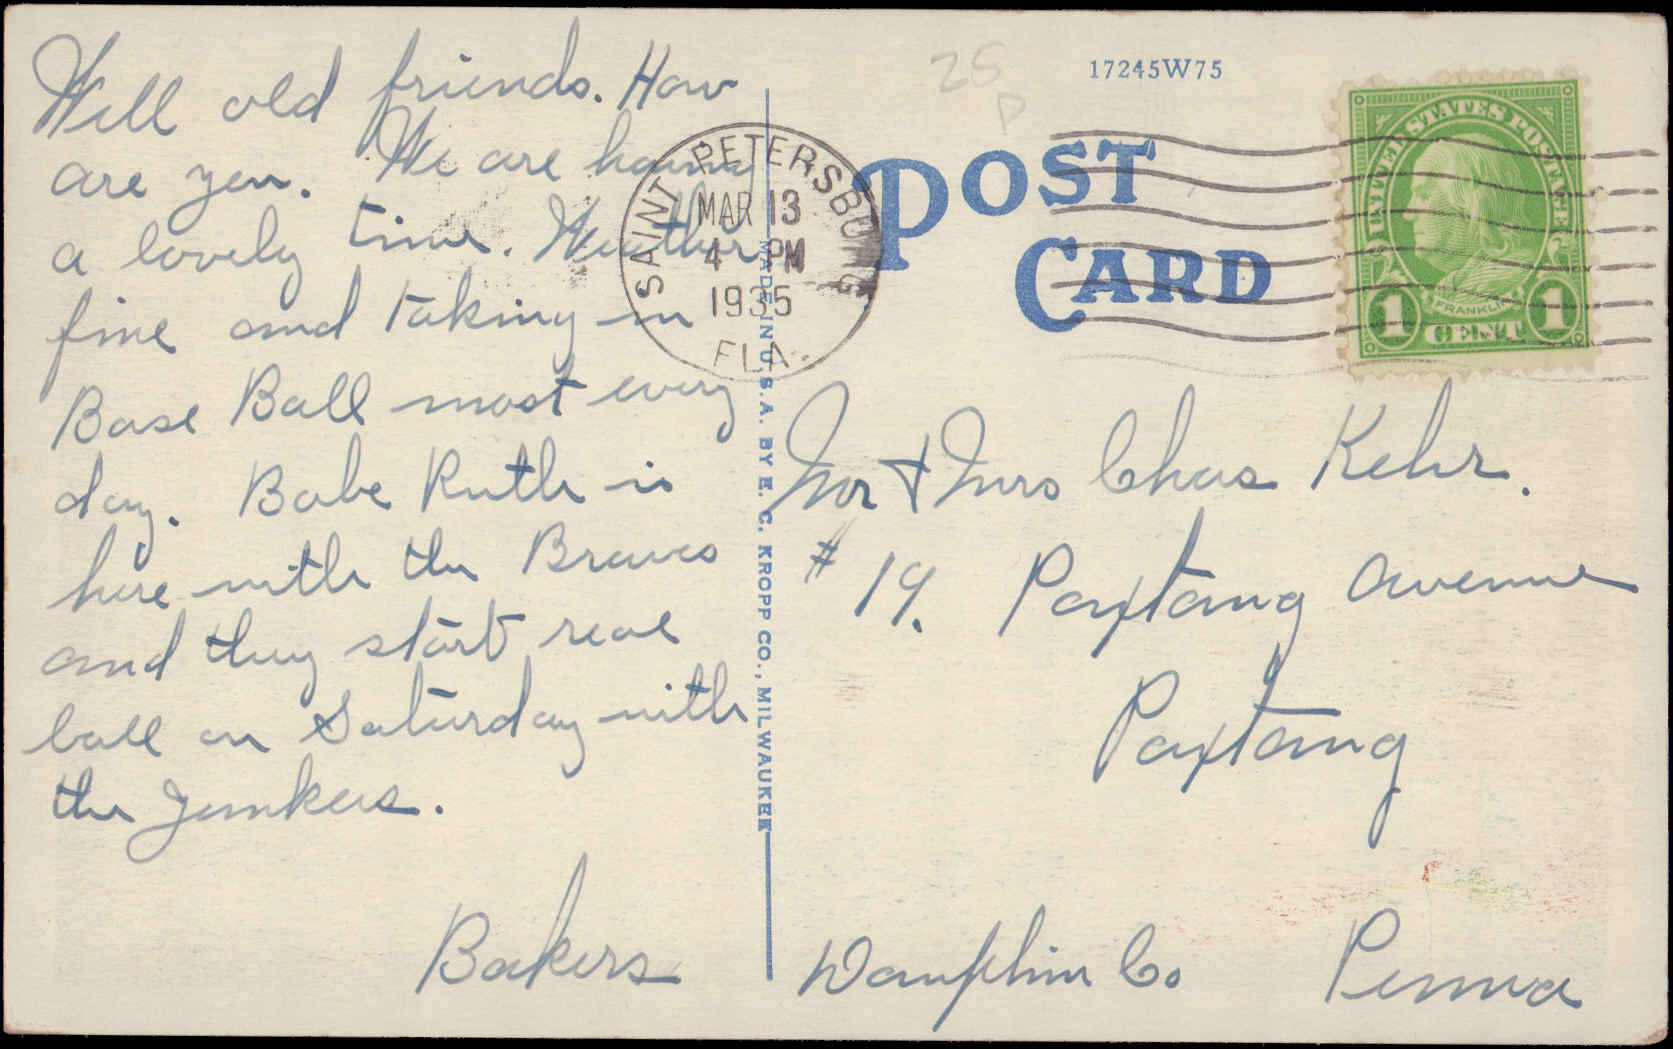 Well old friends. How
are you. We are having
a lovely time. Weather
fine and taking in
Base Ball most every
day. Babe Ruth is
here with the Braves
and they start real
ball on Saturday with
the Yankees.
Bakers
MADE IN U.S.A. BY E. C. KROPP CO., MILWAUKEE
25
P
17245W75
POST
CARD
SAINT PETERSBURG
MAR 13
4 PM
1935
FLA.
UNITED STATES POSTAGE
FRANKLIN
1 CENT 1
Mr & Mrs Chas Kehr.
# 19. Paxtang Avenue
Paxtang
Dauphin Co Penna